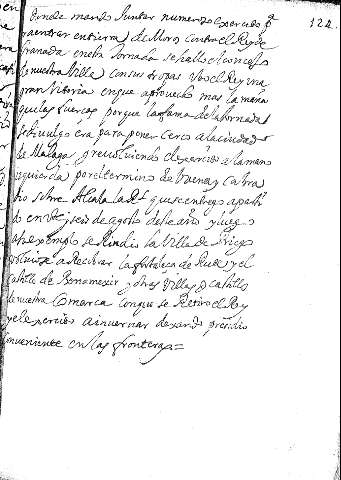 124
donde mando Juntar numeroso exercito pª
entrar en tierra de Moros contra el Rey de
Granada en esta Jornada se hallo el concejo
de nuestra Villa con sus tropas Vbo el Rey una
gran Vitoria en que aprouecho mas la maña
que las fuerças porque la fama de la Jornada
era para poner cerco a la ciudad
de Malaga y reuoluiendo el exercito a la mano
izquierda por el termino de Vaena y Cabra
dio sobre Alcala la Rl que se entrego a parti
do en Veynte seis de agosto de este año y luego
a su exemplo se Rindio la Villa de Priego
a Recibir la fortaleza de Rute y el
castillo de Benamexir y otras Villas y castillos
de nuestra Comarca con que se Retiro el Rey
y el exercito a inuernar dexando presidio
conueniente en las fronteras=